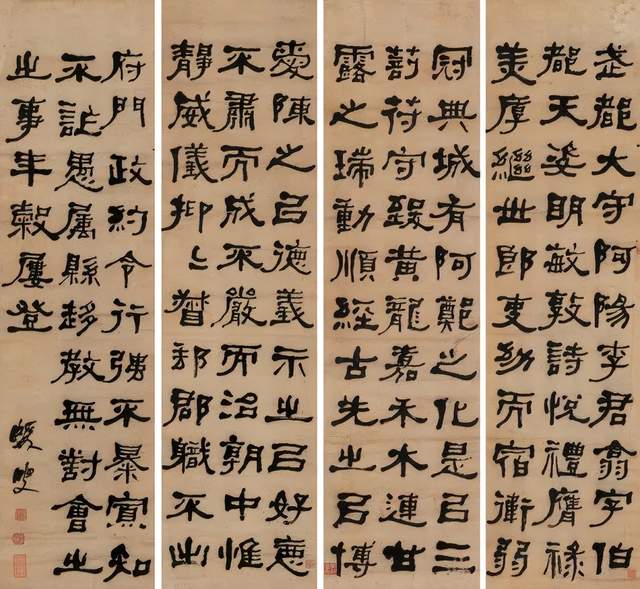 武都大守阿陽李君翕字伯
都天姿明敏敦詩悅禮膺祿
美厚繼世郎吏幼而宿衛弱
冠典城有阿鄭之化是㠯三
剖符守致黃龍嘉禾木連甘
露之瑞動順經古先之㠯博
愛陳之㠯德義示之㠯好惡
不肅而成不嚴而治朝中惟
靜威儀抑〻督郵部職不出
府門政約令行強不暴寡知
不詐愚屬縣趍教無對會之
之事年穀屢登
蝯叟